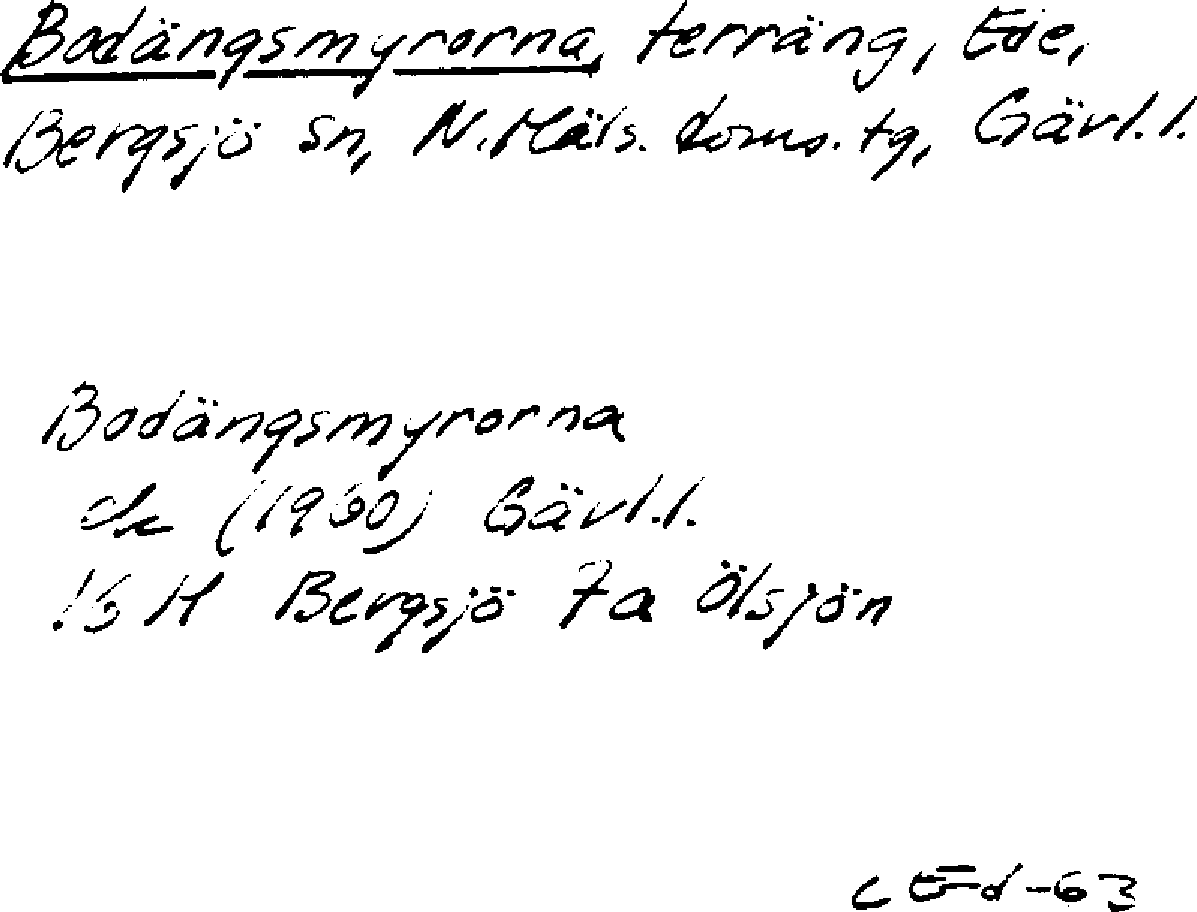 Bodängsmyrorna, terräng, Ede,
Bergsjö sn, N. Häls. doms. tg, Gävl.l.
Bodängsmyrorna
ek (1960) Gävl.l.
16 H Bergsjö 7a Ölsjön
CEd-63